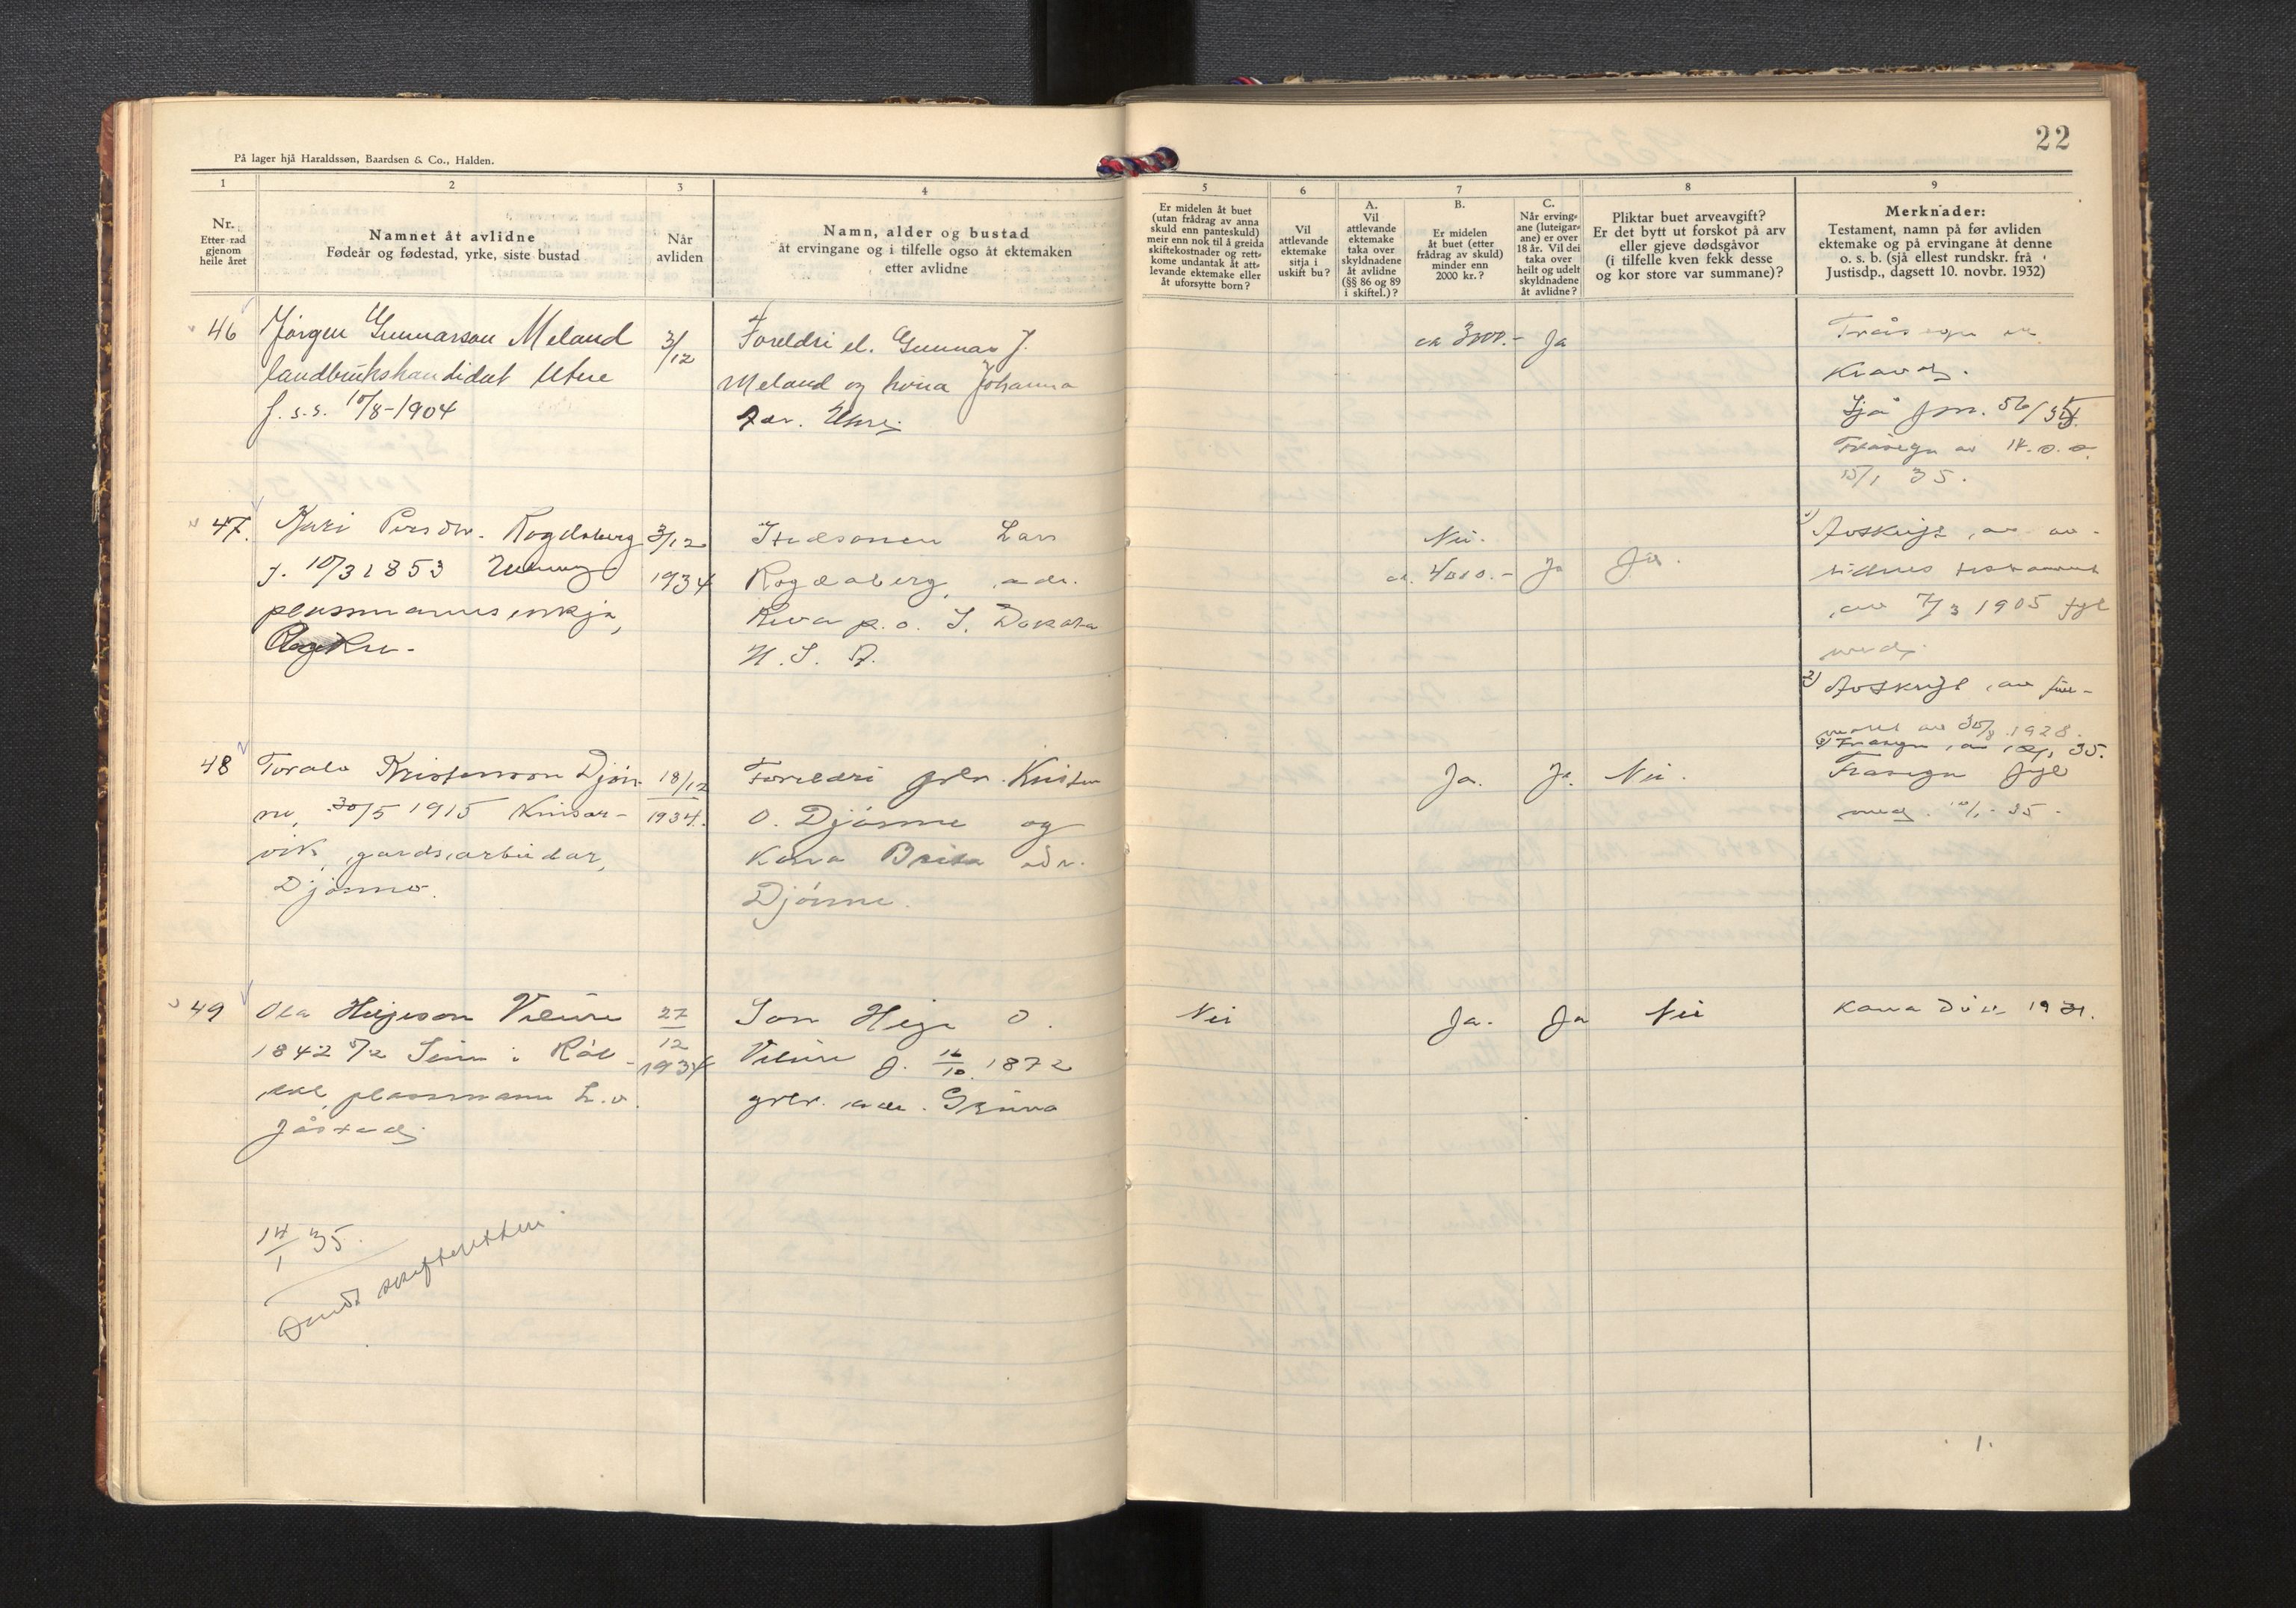 22
På lager hjå Haraldssøn, Baardsen & Co., Halden.
1
2
3
4
5
6
7
8
9
Nr.
Etter rad
gjenom
heile året
Namnet åt avlidne
Fødeår og fødestad, yrke, siste bustad
Når
avliden
Namn, alder og bustad
åt ervingane og i tilfelle ogso åt ektemaken
etter avlidne
Er midelen åt buet
(utan frådrag av anna
skuld enn panteskuld)
meir enn nok til å greida
skiftekostnader og rett-
kome undantak åt att-
levande ektemake eller
åt uforsytte born?
Vil
attlevande
ektemake
sitja i
uskift bu?
A.
Vil
attlevande
ektemake
taka over
skyldnadene
åt avlidne
(§§ 86 og 89
i skiftel.)?
B.
Er midelen
åt buet (etter
frådrag av skuld)
minder enn
2000 kr.?
C.
Når erving-
ane (luteigar-
ane) er over
18 år. Vil dei
taka over
heilt og udelt
skyldnadene
åt avlidne?
Pliktar buet arveavgift?
Er det bytt ut forskot på arv
eller gjeve dødsgåvor
(i tilfelle kven fekk desse
og kor store var summane)?
Merknader:
Testament, namn på før avliden
ektemake og på ervingane åt denne
o. s. b. (sjå ellest rundskr. frå
Justisdp., dagsett 10. novbr. 1932)
46
Jørgen Gunnarson Meland
landbrukskandidat Utne
f. s.s. 10/8-1904
3/12
Foreldri el. Gunnar J.
Meland og kona Johanna
adr. Utne
ca 3000.- Ja
Sjå jnr. 56/35
15/1 35.
47.
Kari Persdtr. Rogdaberg
f. 10/3 1853
plassmannsenkja,
3/12
1934
Lars
Rogdaberg, adr.
Reva p.o. S. Dakota
U. S. A.
Nei.
ca. 4000.- Ja
Ja.
1) Avskrift av av-
lidnes testament
av 7/3 1905 fyl
med.
2) Avskrift av
1928.
35.
48
Torald Kristenson Djøn-
ne, 30/5 1915 Kinsar-
vik, gardsarbeidar,
Djønno.
18/12
1934.
Foreldri Kristen
O. Djønne og
kona Brita adr.
Djønne.
Ja.
Ja.
Nei.
Fråsegn fyl
med. 35.
49
Ola Helgeson Vilure
1842 Seim i Røl-
dal, plassmann
Jåstad
27
12
1934
Son Helge O.
Vilure f. 16/10 1872
adr. Grimo
Nei
Ja.
Ja
Nei
Kona død 1931.
14/1 35.
Sendt skifteretten
1.